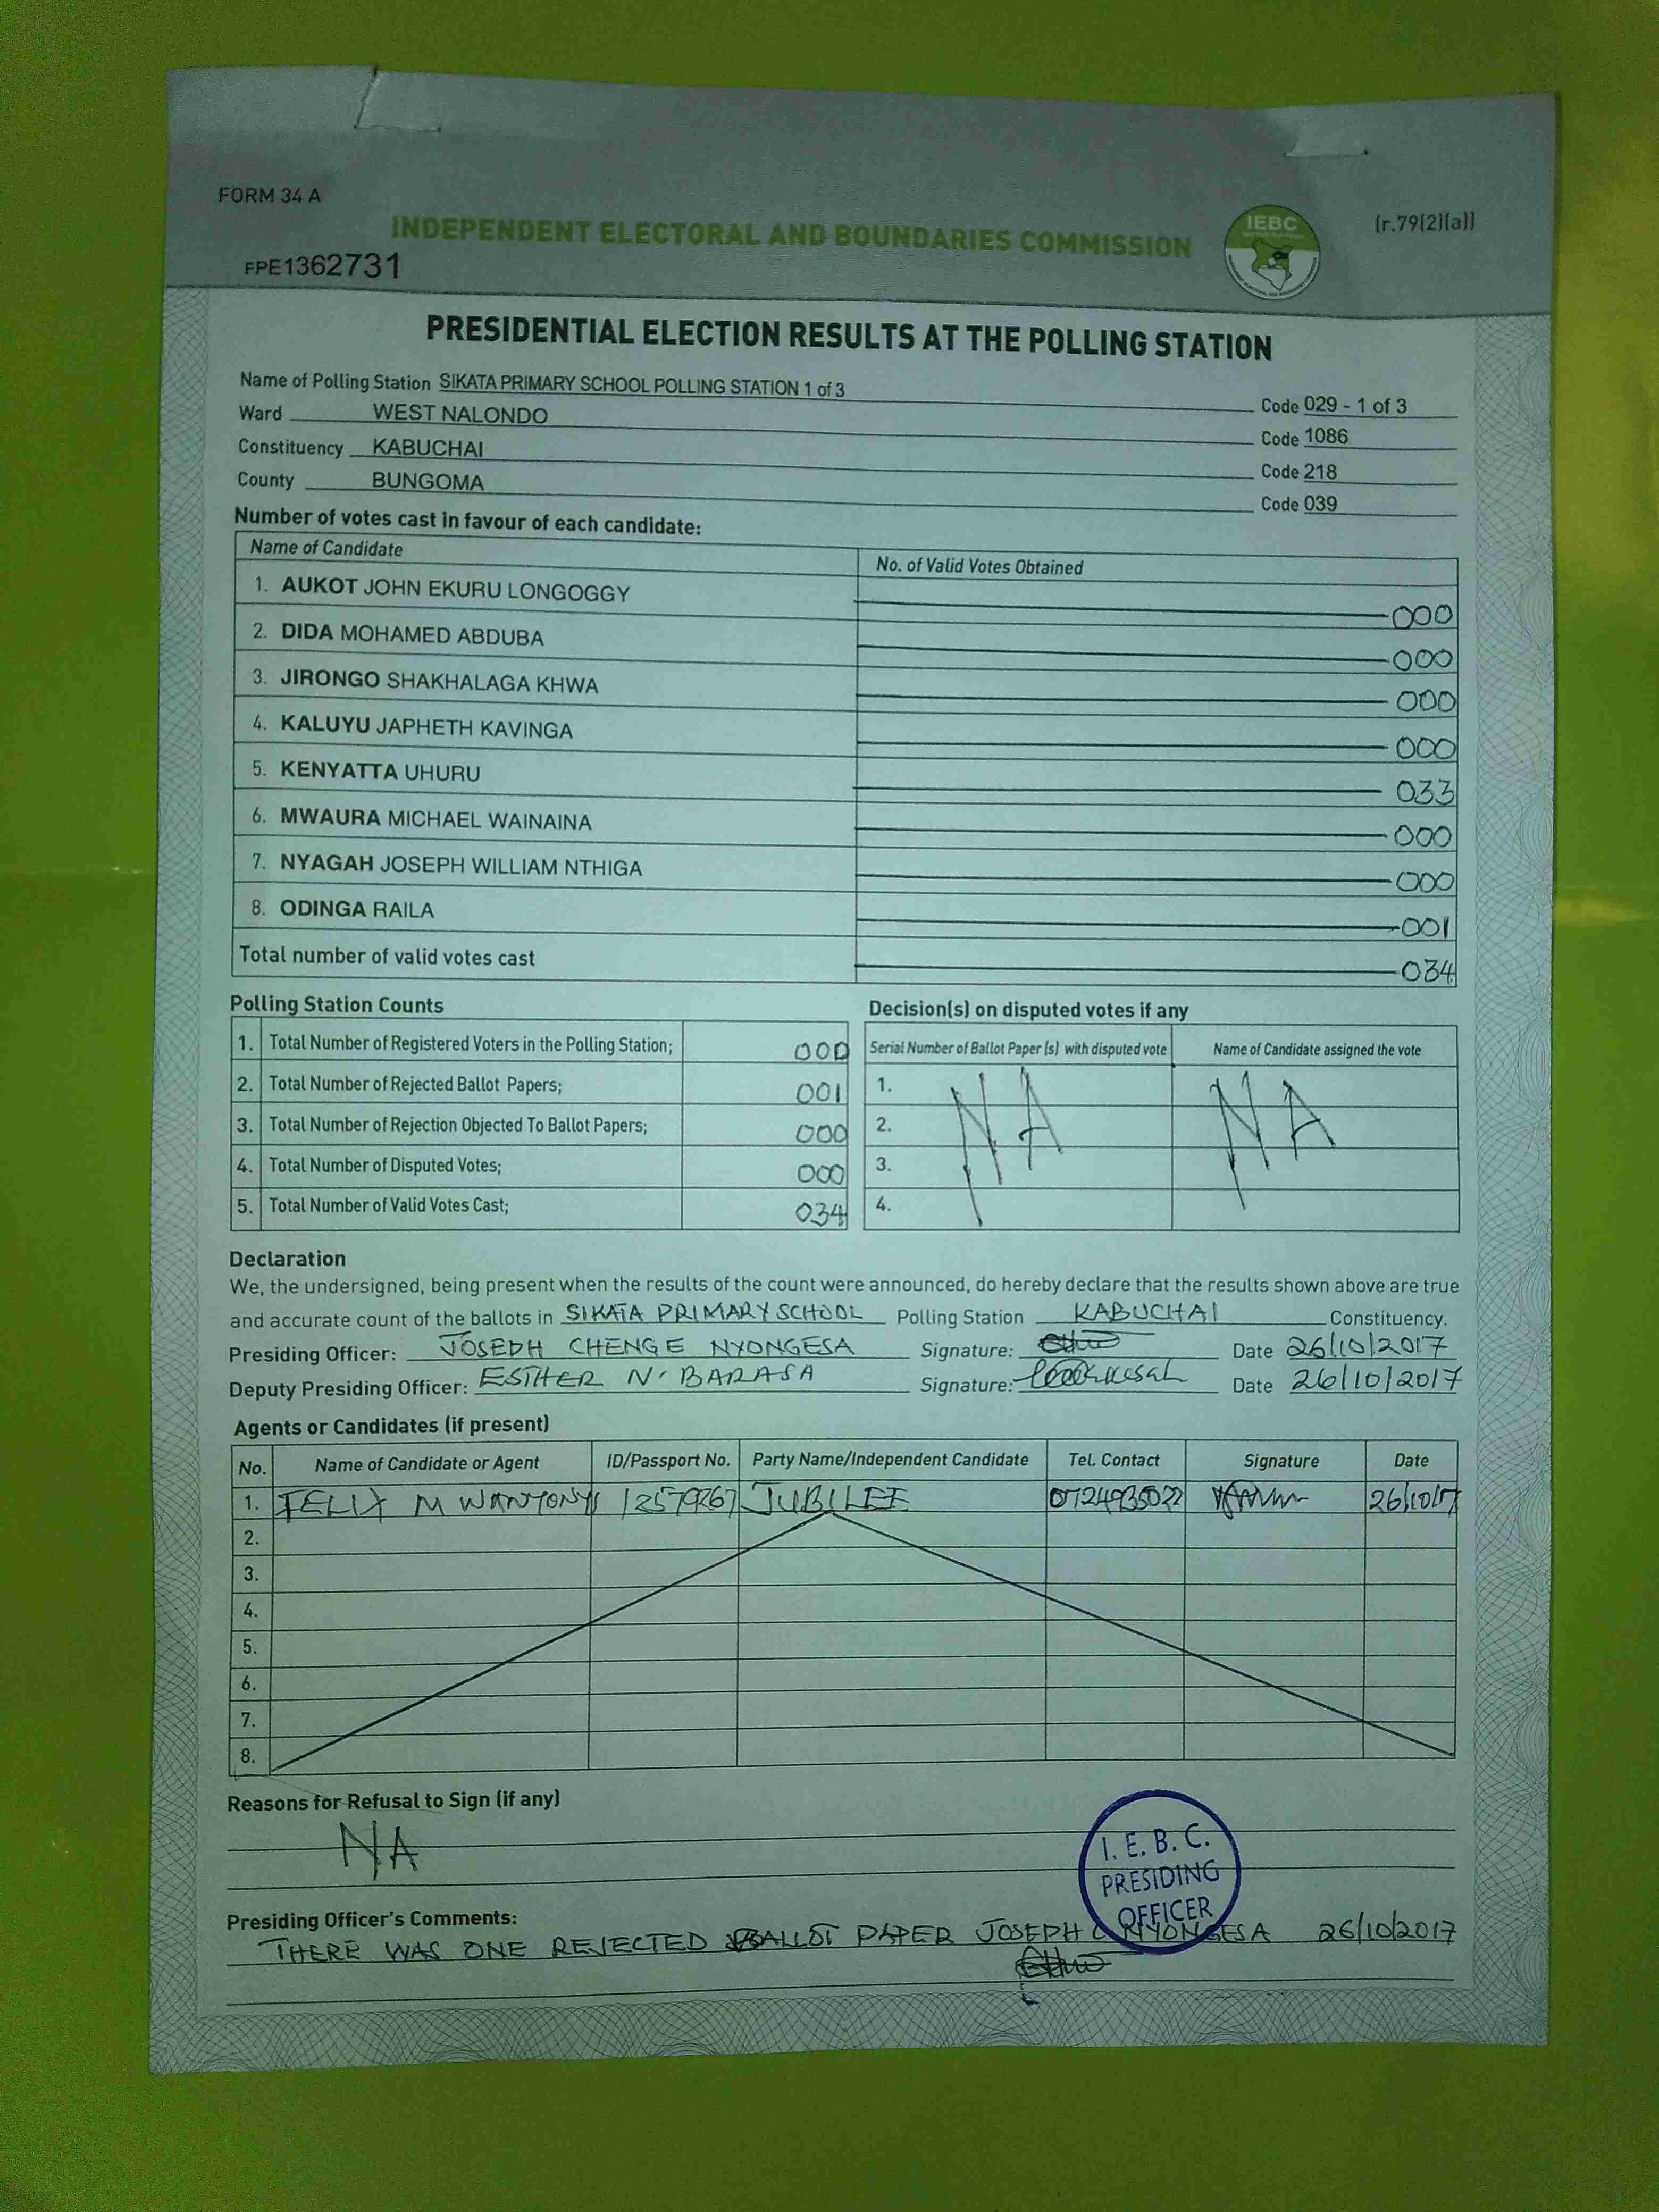 FORM 34 A
INDEPENDENT ELECTORAL AND BOUNDARIES COMMISSION
IEBC
(r.79(2)(a))
FPE1362731
PRESIDENTIAL ELECTION RESULTS AT THE POLLING STATION
Name of Polling Station SIKATA PRIMARY SCHOOL POLLING STATION 1 of 3 Code 029 - 1 of 3
Ward WEST NALONDO Code 1086
Constituency KABUCHAI Code 218
County BUNGOMA Code 039
Number of votes cast in favour of each candidate:
Name of Candidate No. of Valid Votes Obtained
1. AUKOT JOHN EKURU LONGOGGY 000
2. DIDA MOHAMED ABDUBA 000
3. JIRONGO SHAKHALAGA KHWA 000
4. KALUYU JAPHETH KAVINGA 000
5. KENYATTA UHURU 033
6. MWAURA MICHAEL WAINAINA 000
7. NYAGAH JOSEPH WILLIAM NTHIGA 000
8. ODINGA RAILA 001
Total number of valid votes cast 034
Polling Station Counts
1. Total Number of Registered Voters in the Polling Station; 000
2. Total Number of Rejected Ballot Papers; 001
3. Total Number of Rejection Objected To Ballot Papers; 000
4. Total Number of Disputed Votes; 000
5. Total Number of Valid Votes Cast; 034
Decision(s) on disputed votes if any
Serial Number of Ballot Paper (s) with disputed vote Name of Candidate assigned the vote
1.
2. NA NA
3.
4.
Declaration
We, the undersigned, being present when the results of the count were announced, do hereby declare that the results shown above are true
and accurate count of the ballots in SIKATA PRIMARY SCHOOL Polling Station KABUCHAI Constituency.
Presiding Officer: JOSEPH CHENGE NYONGESA Signature: Date 26/10/2017
Deputy Presiding Officer: ESTHER N. BARASA Signature: Date 26/10/2017
Agents or Candidates (if present)
No. Name of Candidate or Agent ID/Passport No. Party Name/Independent Candidate Tel. Contact Signature Date
1. FELIX M WANYONYI 12579267 JUBILEE 0724935022 26/10/17
2.
3.
4.
5.
6.
7.
8.
Reasons for Refusal to Sign (if any)
NA
I. E. B. C.
PRESIDING
OFFICER
Presiding Officer's Comments:
THERE WAS ONE REJECTED BALLOT PAPER JOSEPH C NYONGESA 26/10/2017